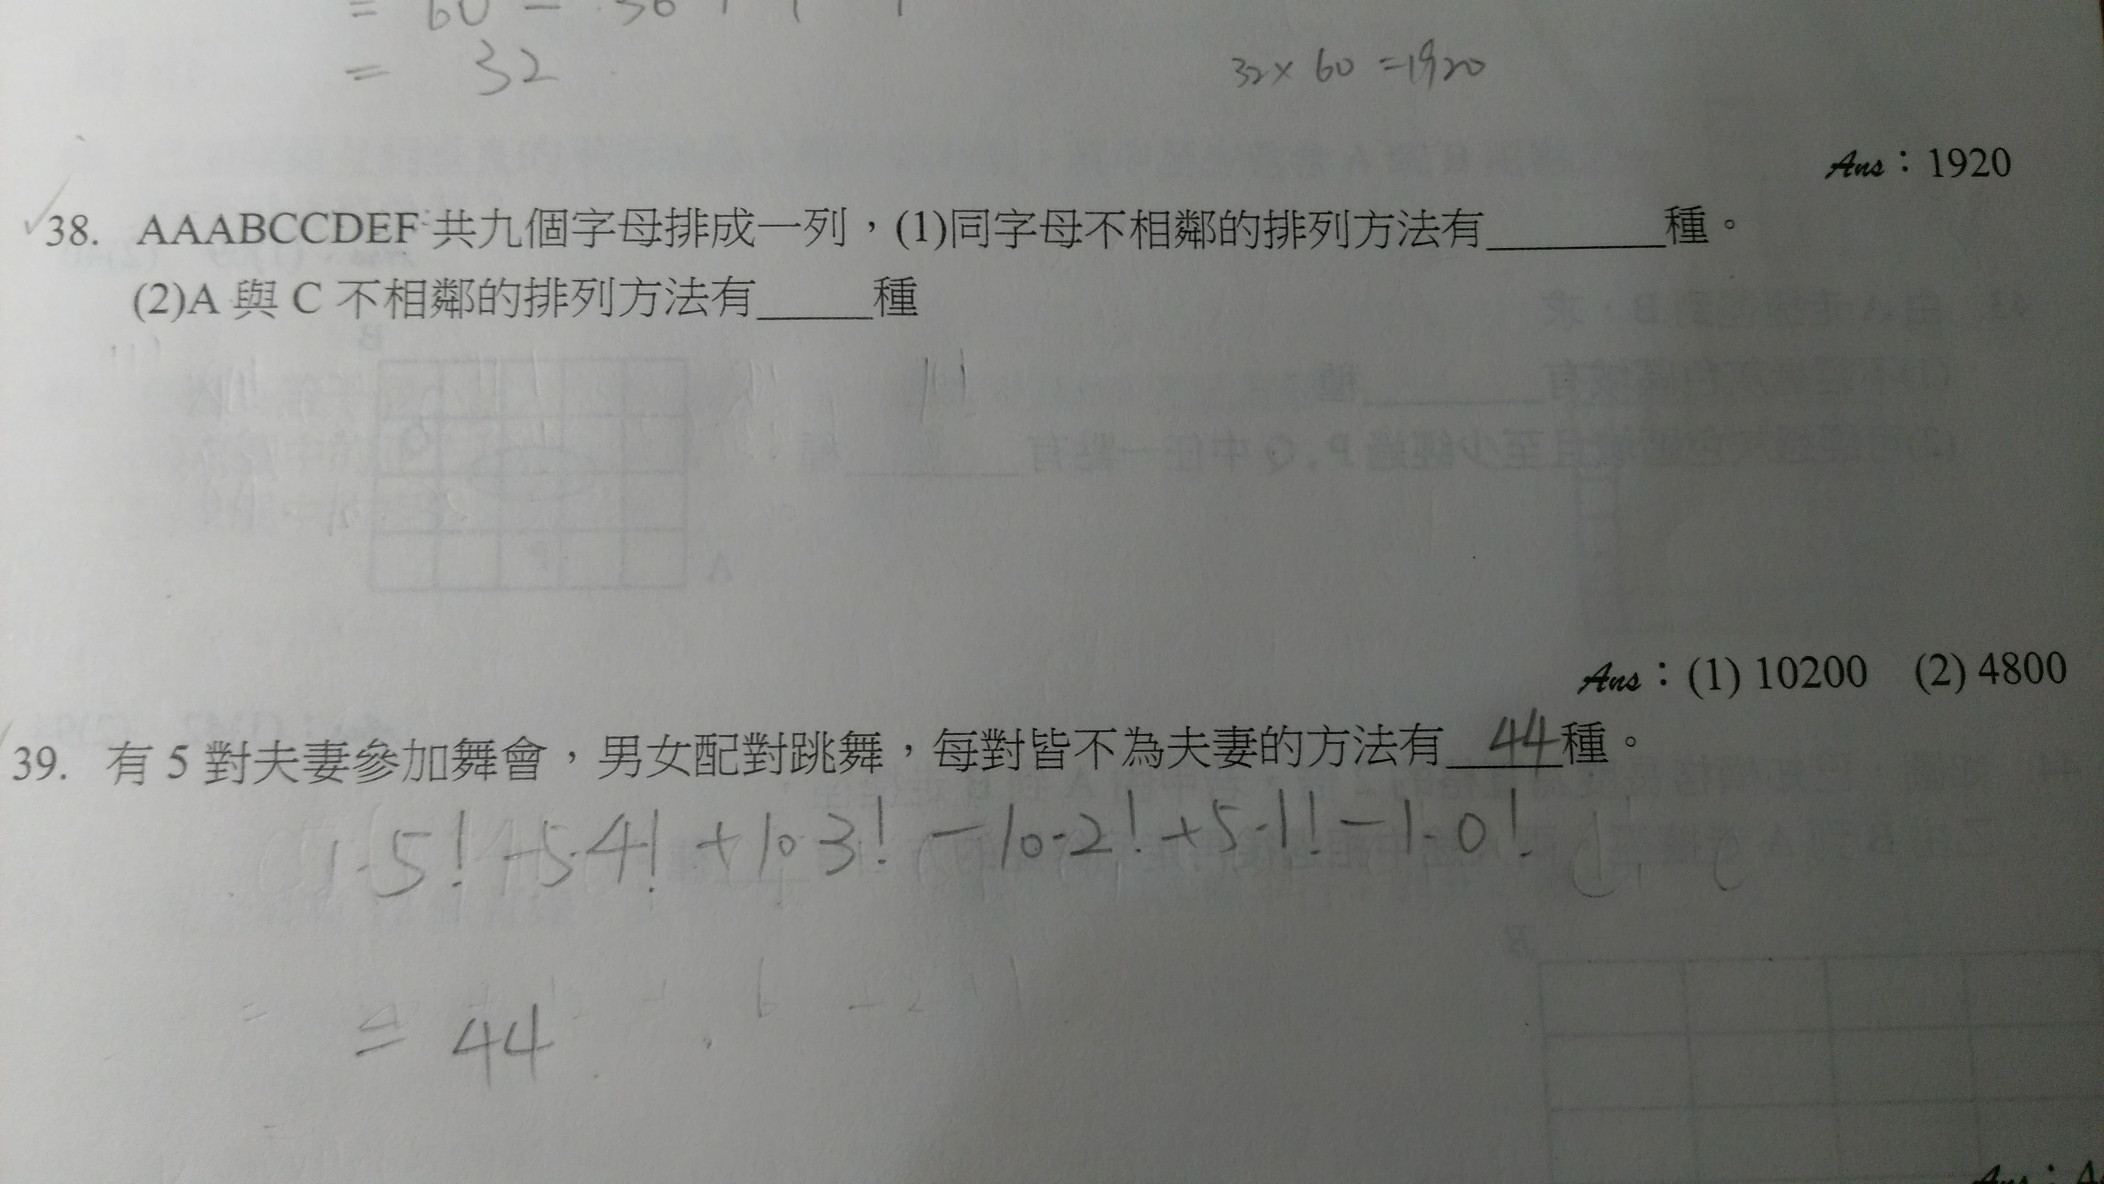 = 32
32 × 60 = 1920
Ans：1920
38. AAABCCDEF 共九個字母排成一列，(1)同字母不相鄰的排列方法有______種。
(2)A 與 C 不相鄰的排列方法有_____種
Ans：(1) 10200 (2) 4800
39. 有 5 對夫妻參加舞會，男女配對跳舞，每對皆不為夫妻的方法有 44 種。
1·5! -5·4! +10·3! -10·2! +5·1! -1·0!
= 44